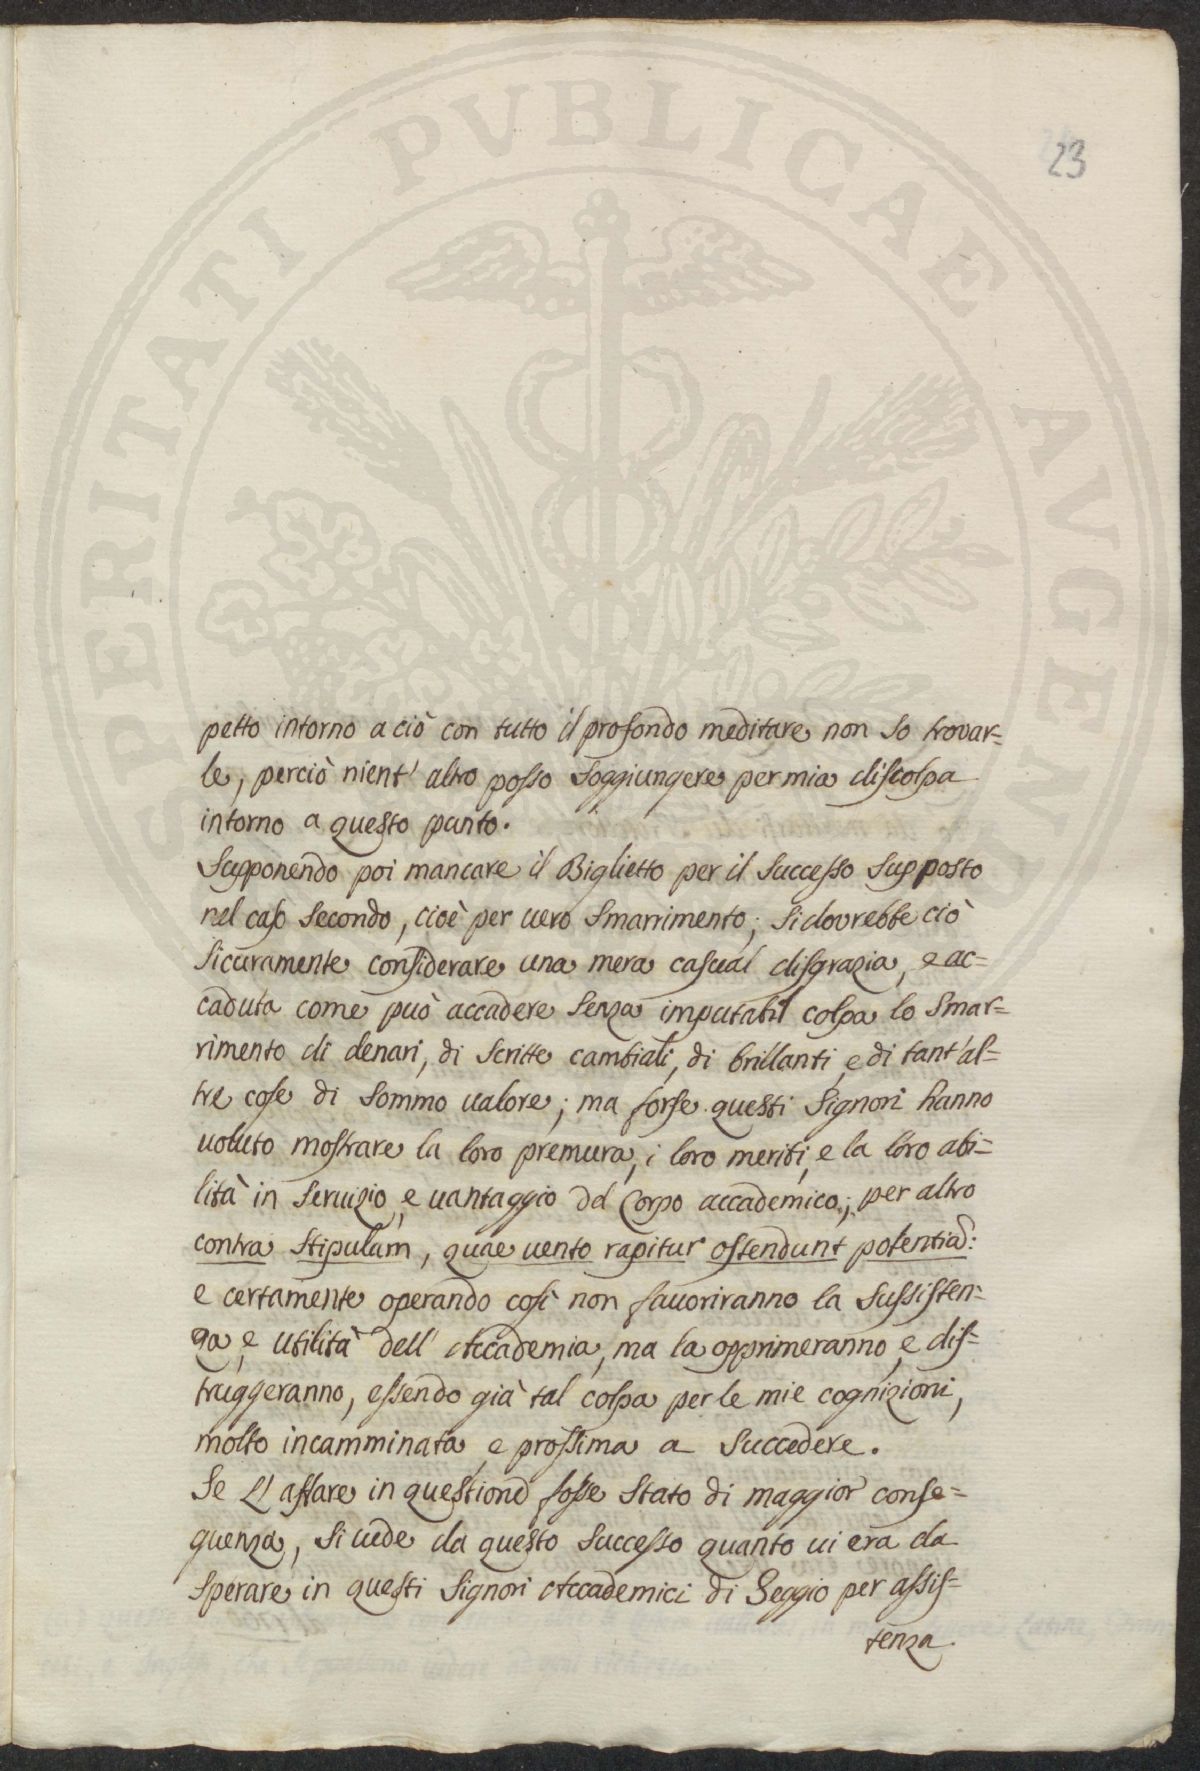 PROSPERITATI PUBLICAE AUGENDAE
23
petto intorno a ciò con tutto il profondo meditare non so trovar=
le, perciò nient' altro posso soggiungere per mia discolpa
intorno a questo punto.
Supponendo poi mancare il Biglietto per il successo supposto
nel caso secondo, cioè per vero smarrimento; si dovrebbe ciò
sicuramente considerare una mera casual disgrazia, e ac=
caduta come può accadere senza imputabil colpa lo smar=
rimento di denari, di scritte cambiali, di brillanti, e di tant'al=
tre cose di sommo valore; ma forse questi Signori hanno
voluto mostrare la loro premura, i loro meriti, e la loro abi=
lità in servizio, e vantaggio del Corpo accademico; per altro
contra stipulam, quae vento rapitur ostendunt potentiam:
e certamente operando così non favoriranno la sussisten=
za, e utilità dell' Accademia, ma la opprimeranno, e dis=
truggeranno, essendo già tal colpa per le mie cognizioni,
molto incamminata, e prossima a succedere.
Se l' affare in questione fosse stato di maggior conse=
guenza, si vede da questo successo quanto vi era da
sperare in questi Signori Accademici di Seggio per assis=
tenza